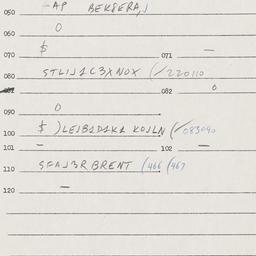 050 -AP BEKSERA,J
060 O
070 $ 071 —
080 STLIJ1C3XNOX (✓220110
081 082 O
090 O
100 $ )LEJB1D1K1 KOJLN (✓083090
101 — 102 —
110 SFAJ3R BRENT (466 (467
120 —